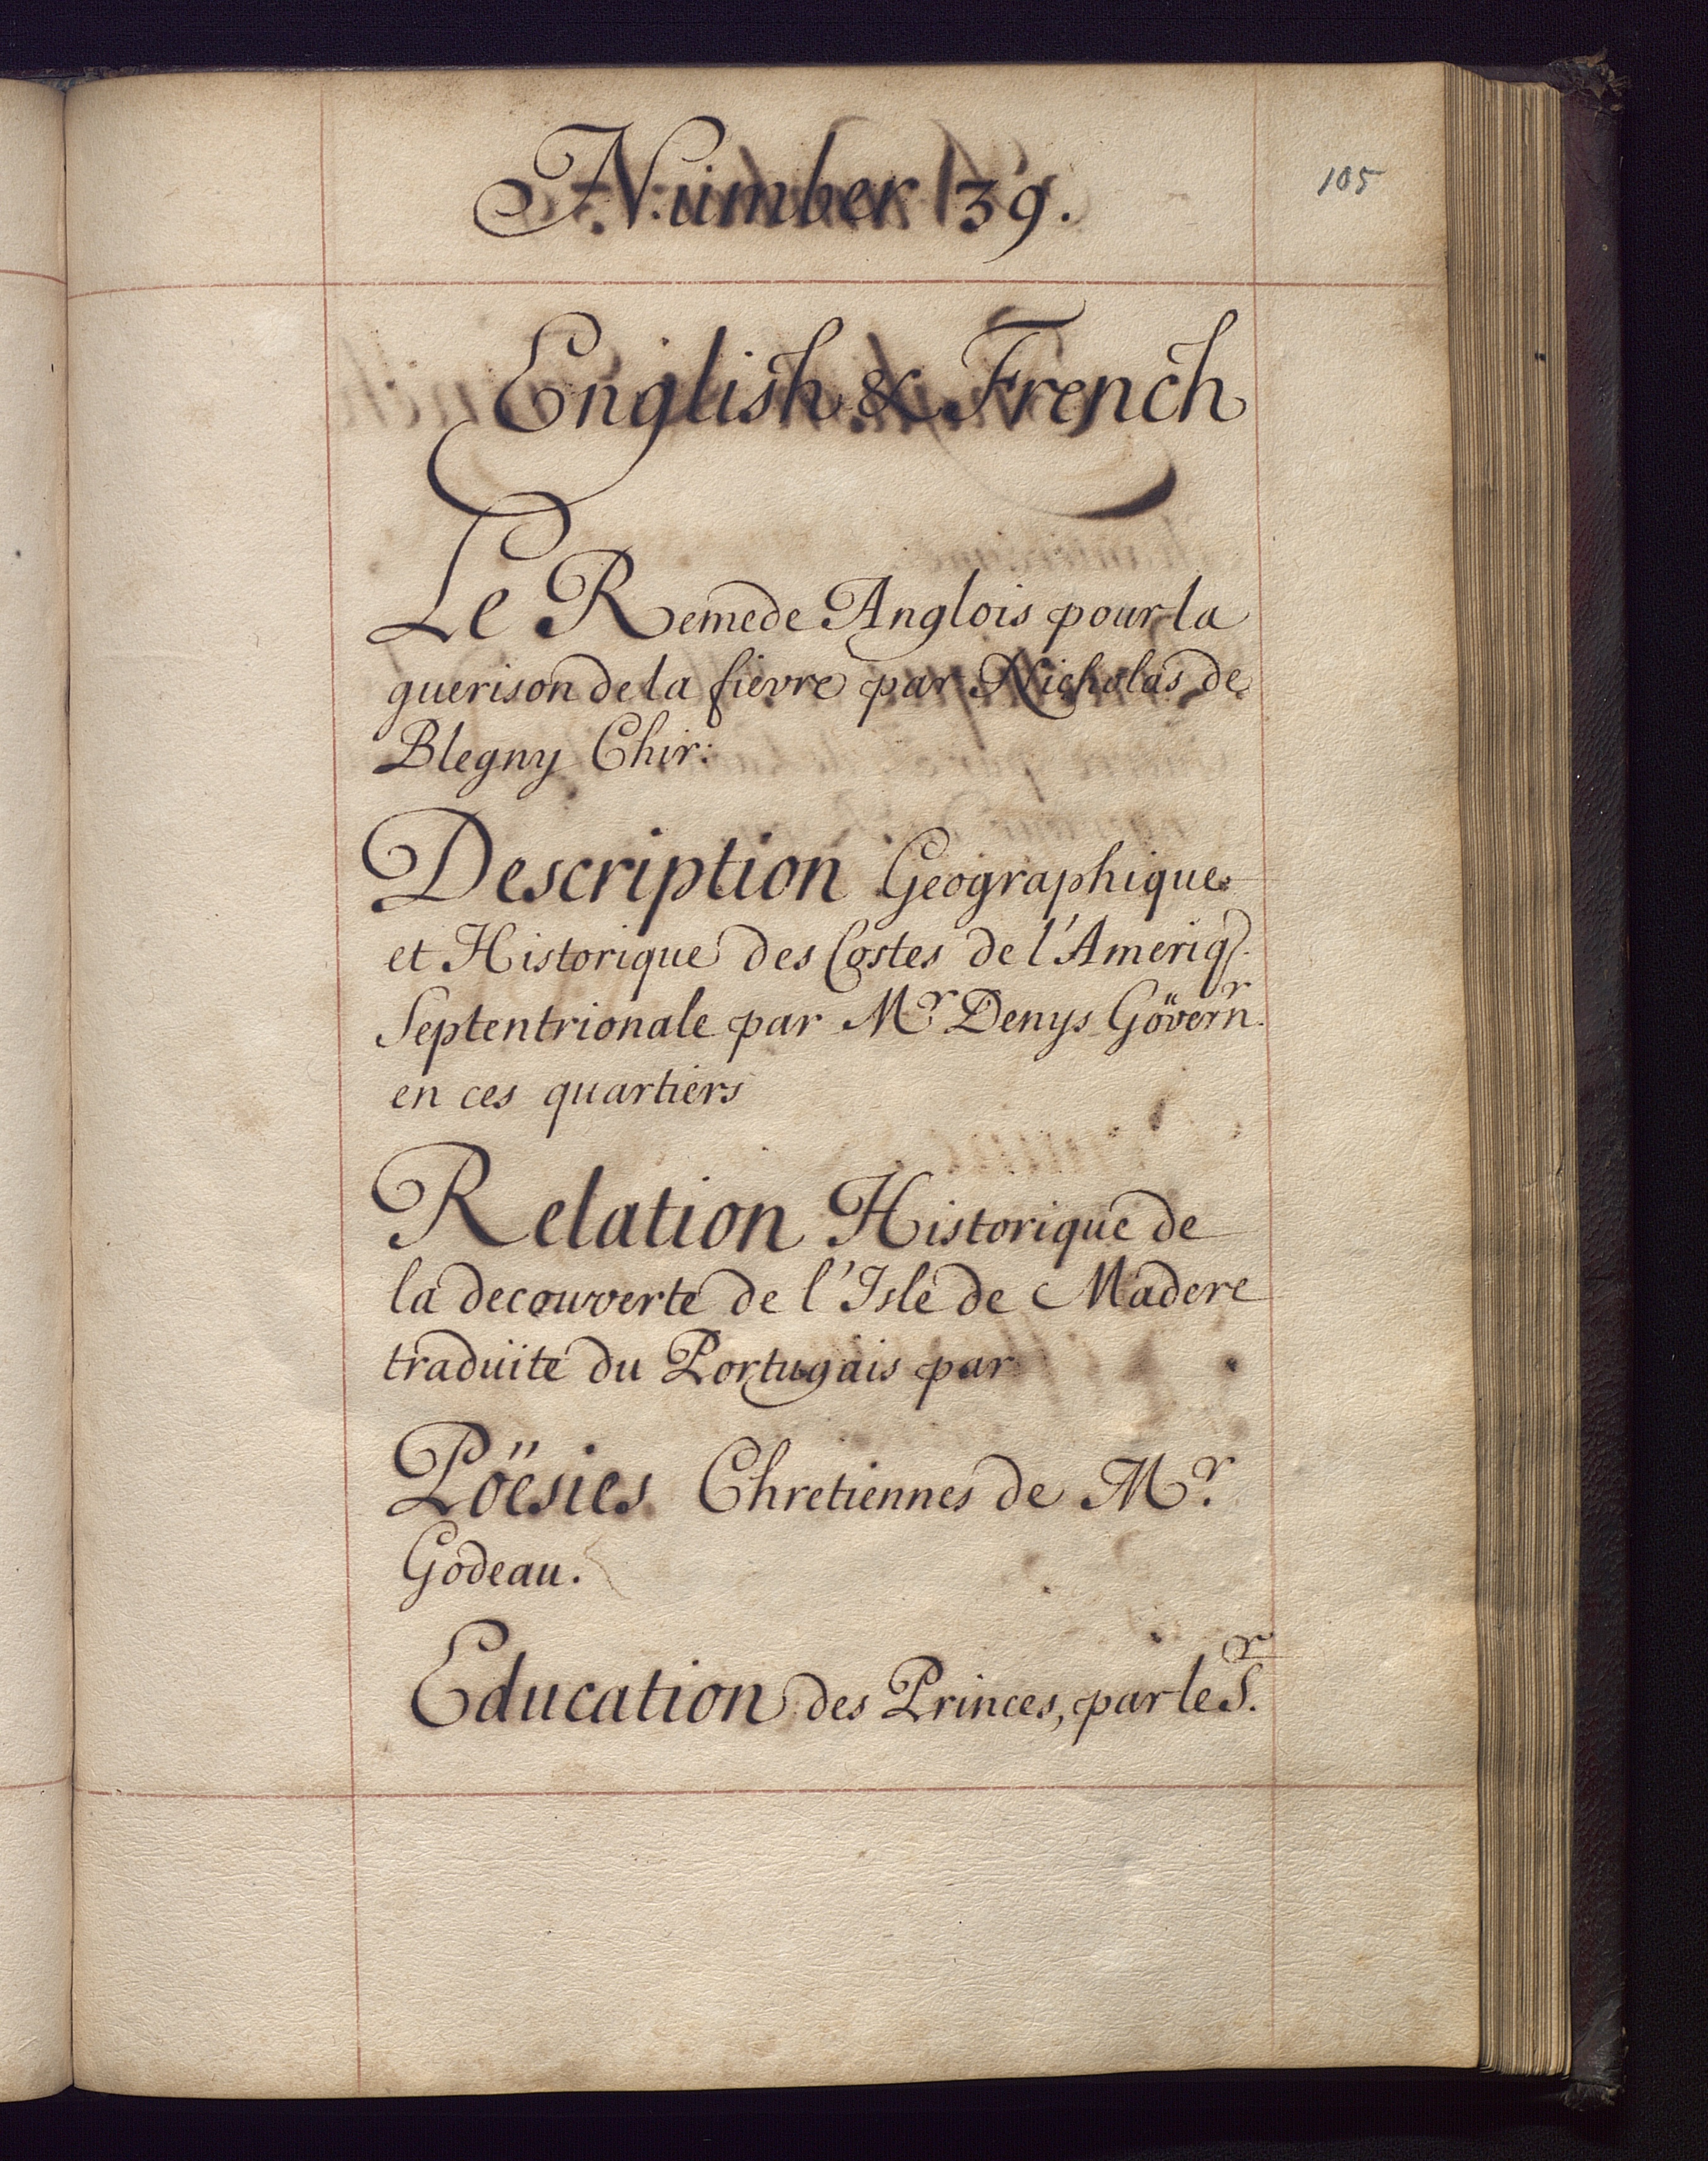 Number 139.
105
English & French
Le Remede Anglois pour la
guerison de la fievre par Nicholas de
Blegny Chir:
Description Geographique
et Historique des Costes de l'Ameriq.
Septentrionale par Mr. Denys Gövernr.
en ces quartiers
Relation Historique de
la decouverte de l'Isle de Madere
traduite du Portugais par
Pöesies Chretiennes de Mr.
Godeau.
Education des Princes, par le Sr.